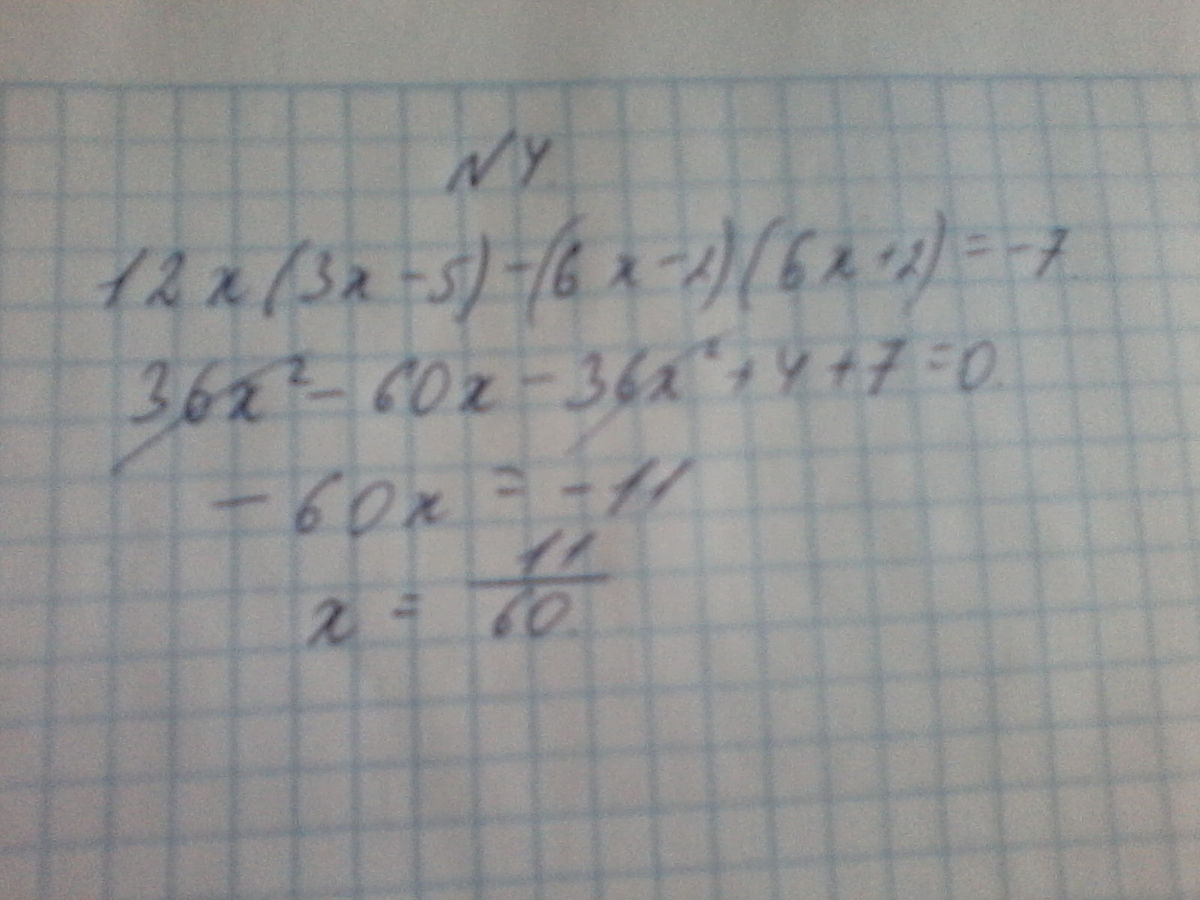 N4
12x(3x-5)-(6x-2)(6x+2)=-7.
36x²-60x-36x²+4+7=0.
-60x=-11
x=11/60.